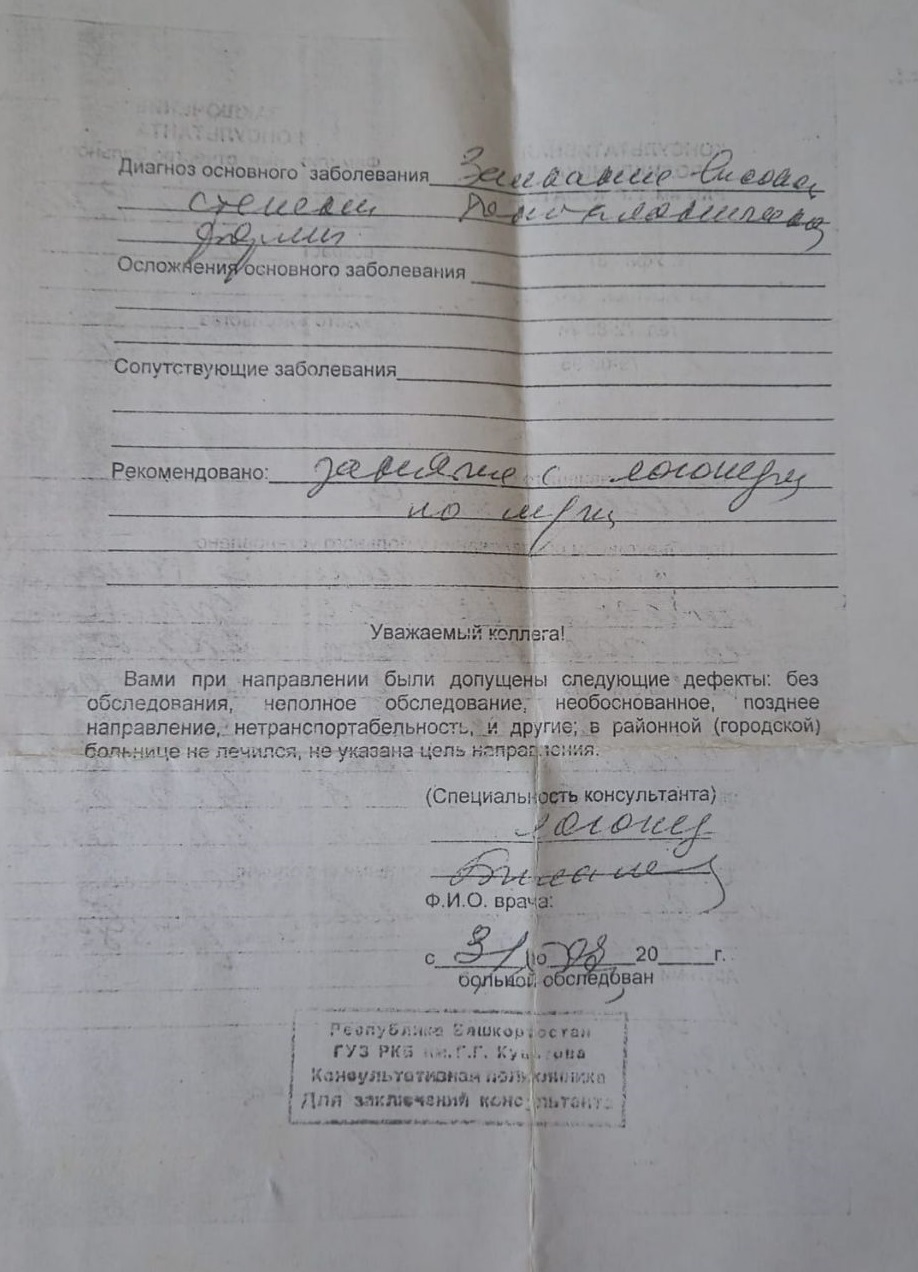 Диагноз основного заболевания Заикание высокой
степени
формы
Осложнения основного заболевания
Сопутствующие заболевания
Рекомендовано: занятие с логопед
по м/ж
Уважаемый коллега!
Вами при направлении были допущены следующие дефекты: без
обследования, неполное обследование, необоснованное, позднее
направление, нетранспортабельность, и другие; в районной (городской)
больнице не лечился, не указана цель направления.
(Специальность консультанта)
логопед
Ф.И.О. врача:
с 31 по 20 г.
больной обследован
Республика Башкортостан
ГУЗ РКБ им.Г.Г. Куватова
Консультативная поликлиника
Для заключений консультанта